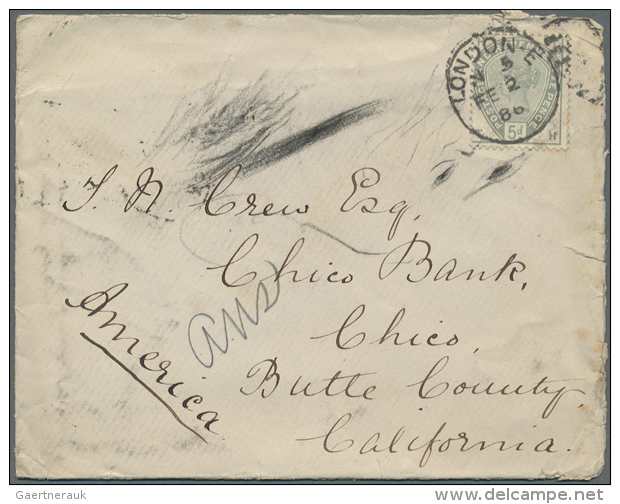 LONDON E
5
FE 2
86
POSTAGE
PENCE
5d
H
J. N. Crew Esq,
Chico Bank,
Chico,
Butte County,
California.
America
ans
Gaertnerauk
www.delcampe.net